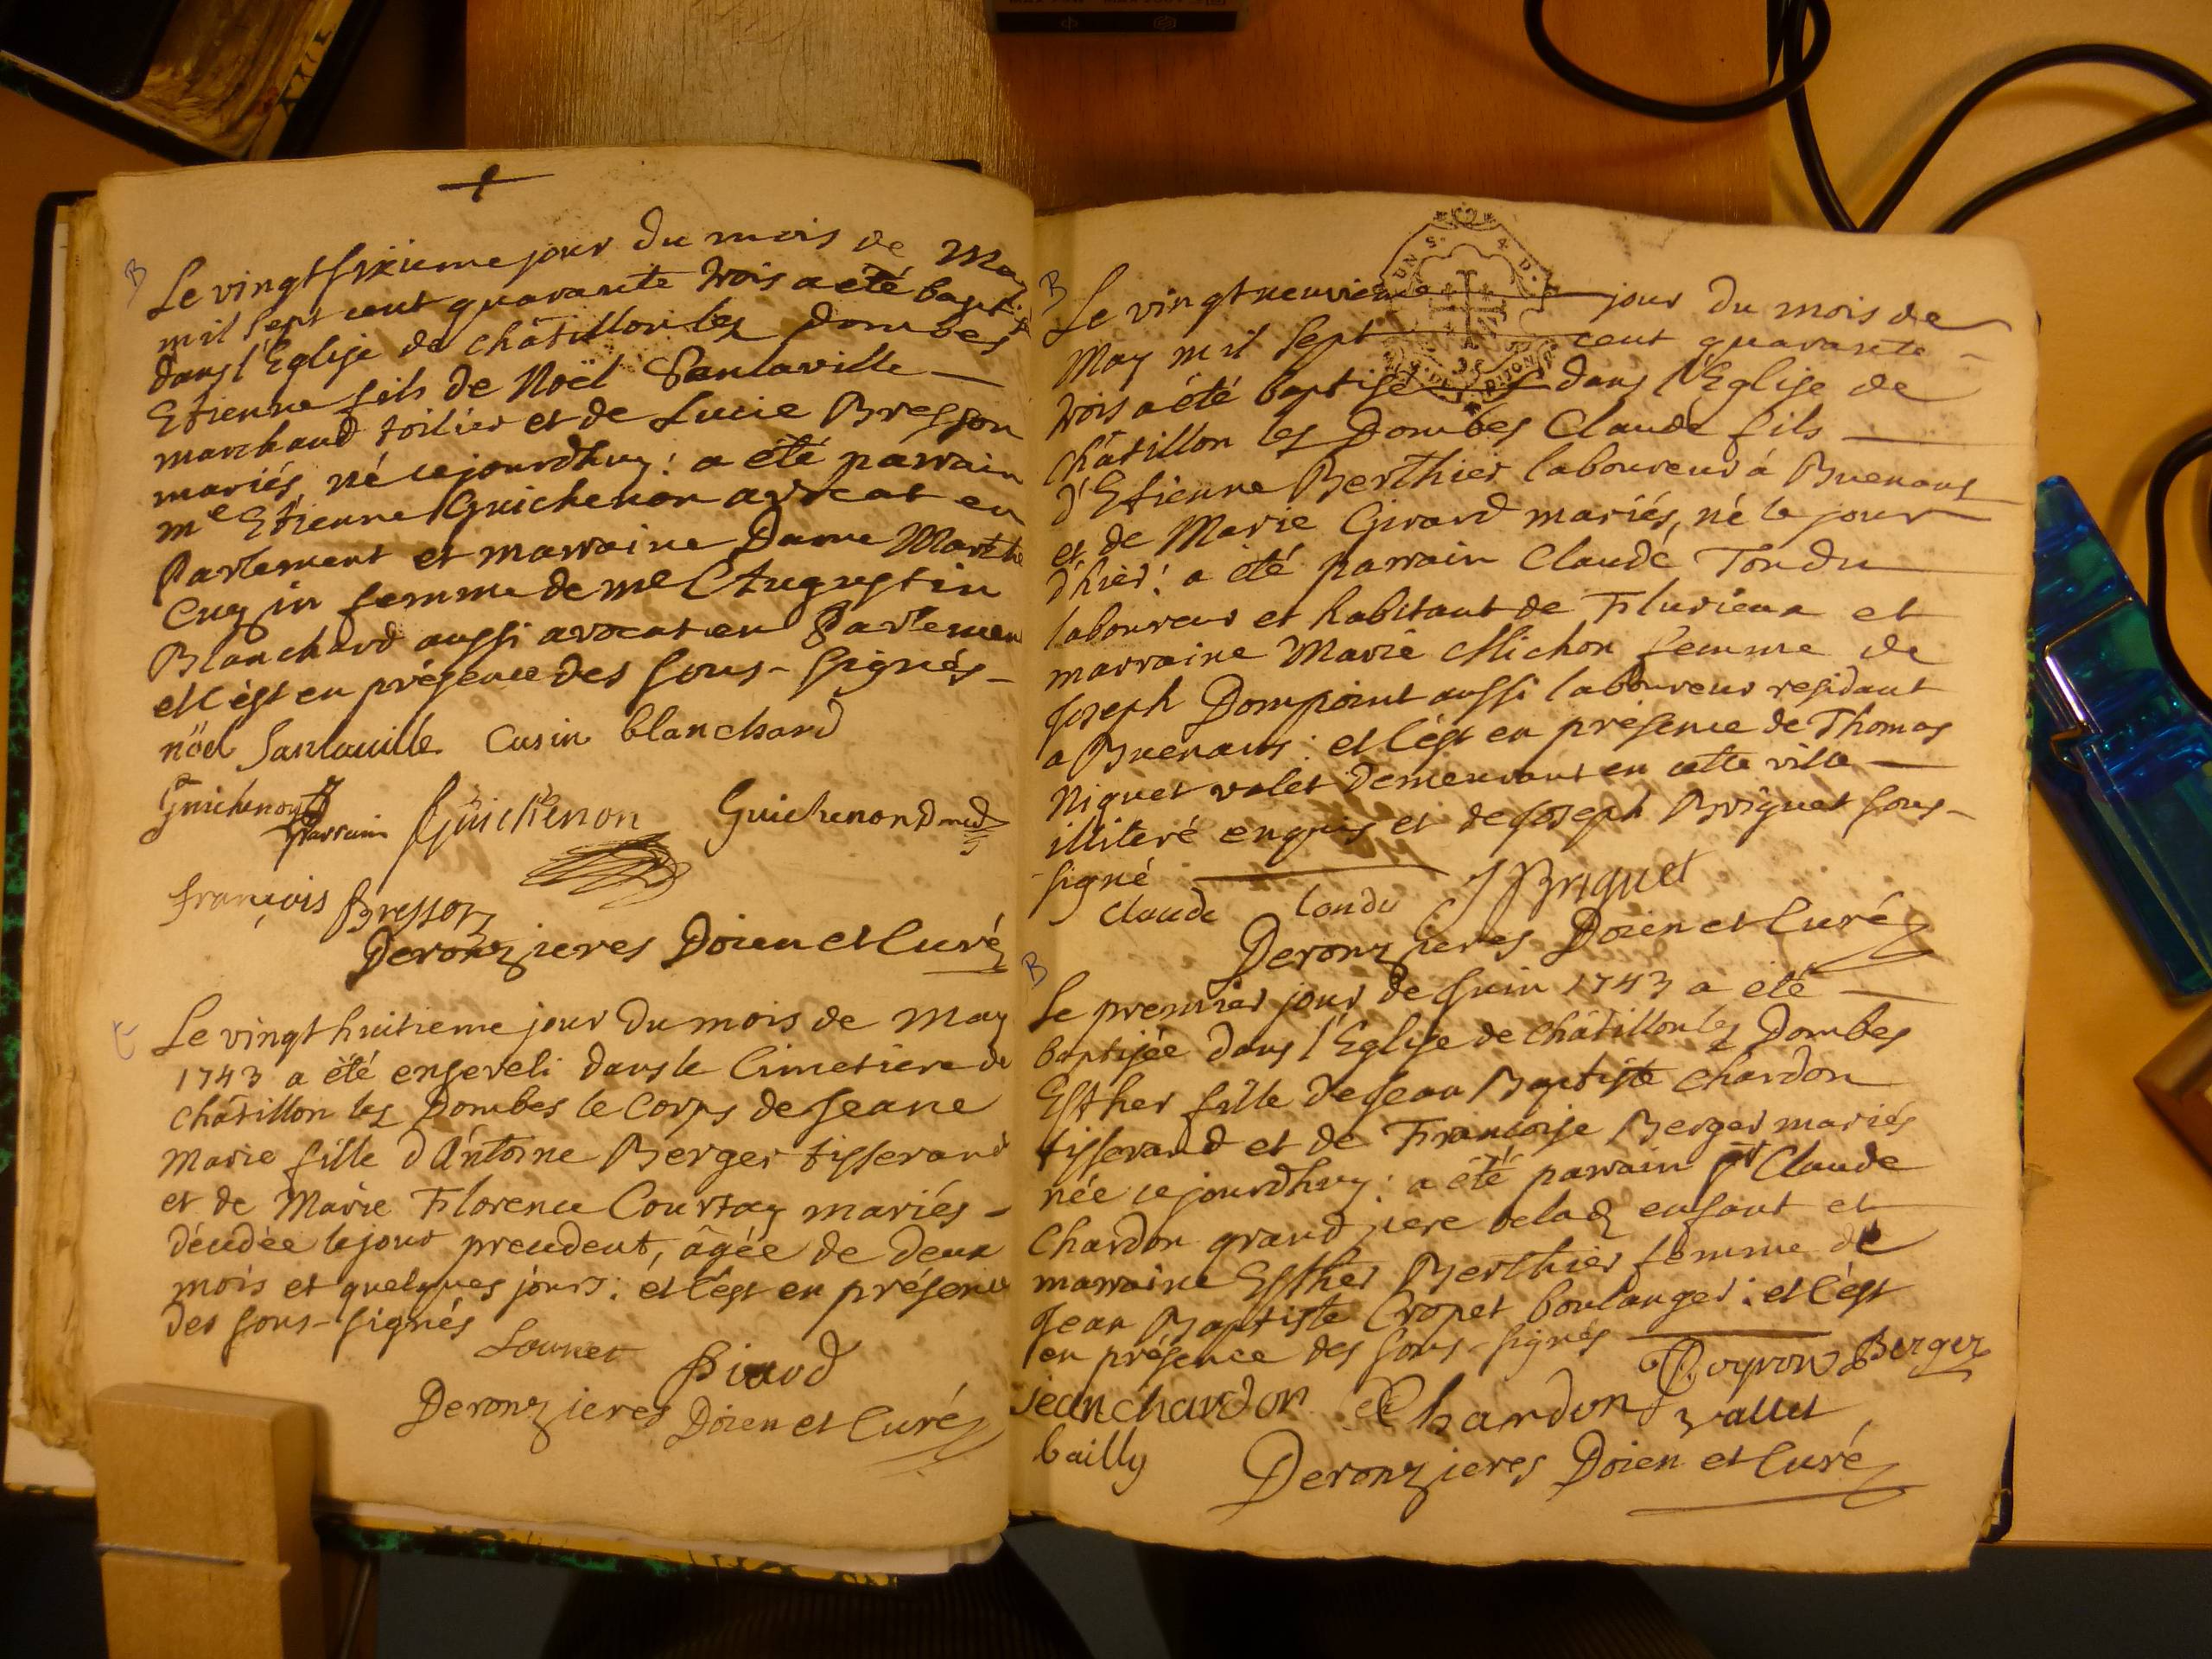 B
Le vingt sixieme jour du mois de May
mil sept cent quarante trois a été baptisé
dans l'Eglise de châtillon les dombes
Etienne fils de Noël Santaville
marchand toilier et de Lucie Bresson
mariés, né cejourdhuy: a été parrain
me Etienne Guichenon avocat en
Parlement et marraine Dame Marthe
Cuzin femme de me Augustin
Blanchard aussi avocat en Parlemen
et c'est en présence des sous-signés -
nöel Santauille Cusin blanchard
Guichenon parrain Guichenon Guichenon
françois Bresson
Deronzieres Doien et Curé
E
Le vingt huitieme jour du mois de May
1743 a été enseveli dans le Cimetiere de
châtillon les Dombes le Corps de Jeane
Marie fille d'Antoine Berger tisserand
et de Marie Florence Courtay mariés -
décédée le jour precedent, âgée de deux
mois et quelques jours: et c'est en présence
des sous-signés
Lounet Biend
Deronzieres Doien et Curé
B
Le vingt neuvieme jour du mois de
May mil sept cent quarante -
trois a été baptisé dans l'Eglise de
châtillon les Dombes Claude fils
d'Etienne Berthier laboureur à Buenans
et de Marie Girard mariés, né le jour
d'hier: a été parrain Claude Tondu
laboureur et habitant de Flurieux et
marraine Marie Michon femme de
Joseph Dompoint aussi laboureur residant
a Buenans: et c'est en présence de Thomas
Niquet valet demeurant en cette ville
illiteré enquis et de Joseph Briquet sous-
signé
Claude tondu J Briquet
Deronzieres Doien et Curé
B
Le premier jour de Juin 1743 a été
baptisée dans l'Eglise de châtillon les Dombes
Esther fille de Jean Baptiste Chardon
tisserand et de Françoise Berger mariés
née cejourdhuy: a été parrain Claude
Chardon grand pere de lad enfant et
marraine Esther Berthier femme de
Jean Baptiste Cropet boulanger: et c'est
en présence des sous-signés
Poyron Berger
jean chardon Chardon vallet
bailly
Deronzieres Doien et Curé